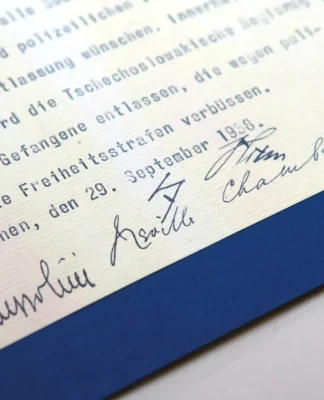 alle
d polizeilichen
tlassung wünschen. Innerha
rd die Tschechoslowakische Regierung
Gefangene entlassen, die wegen poli-
te Freiheitsstrafen verbüssen.
nen, den 29. September 1938.
Chamb
ussolini